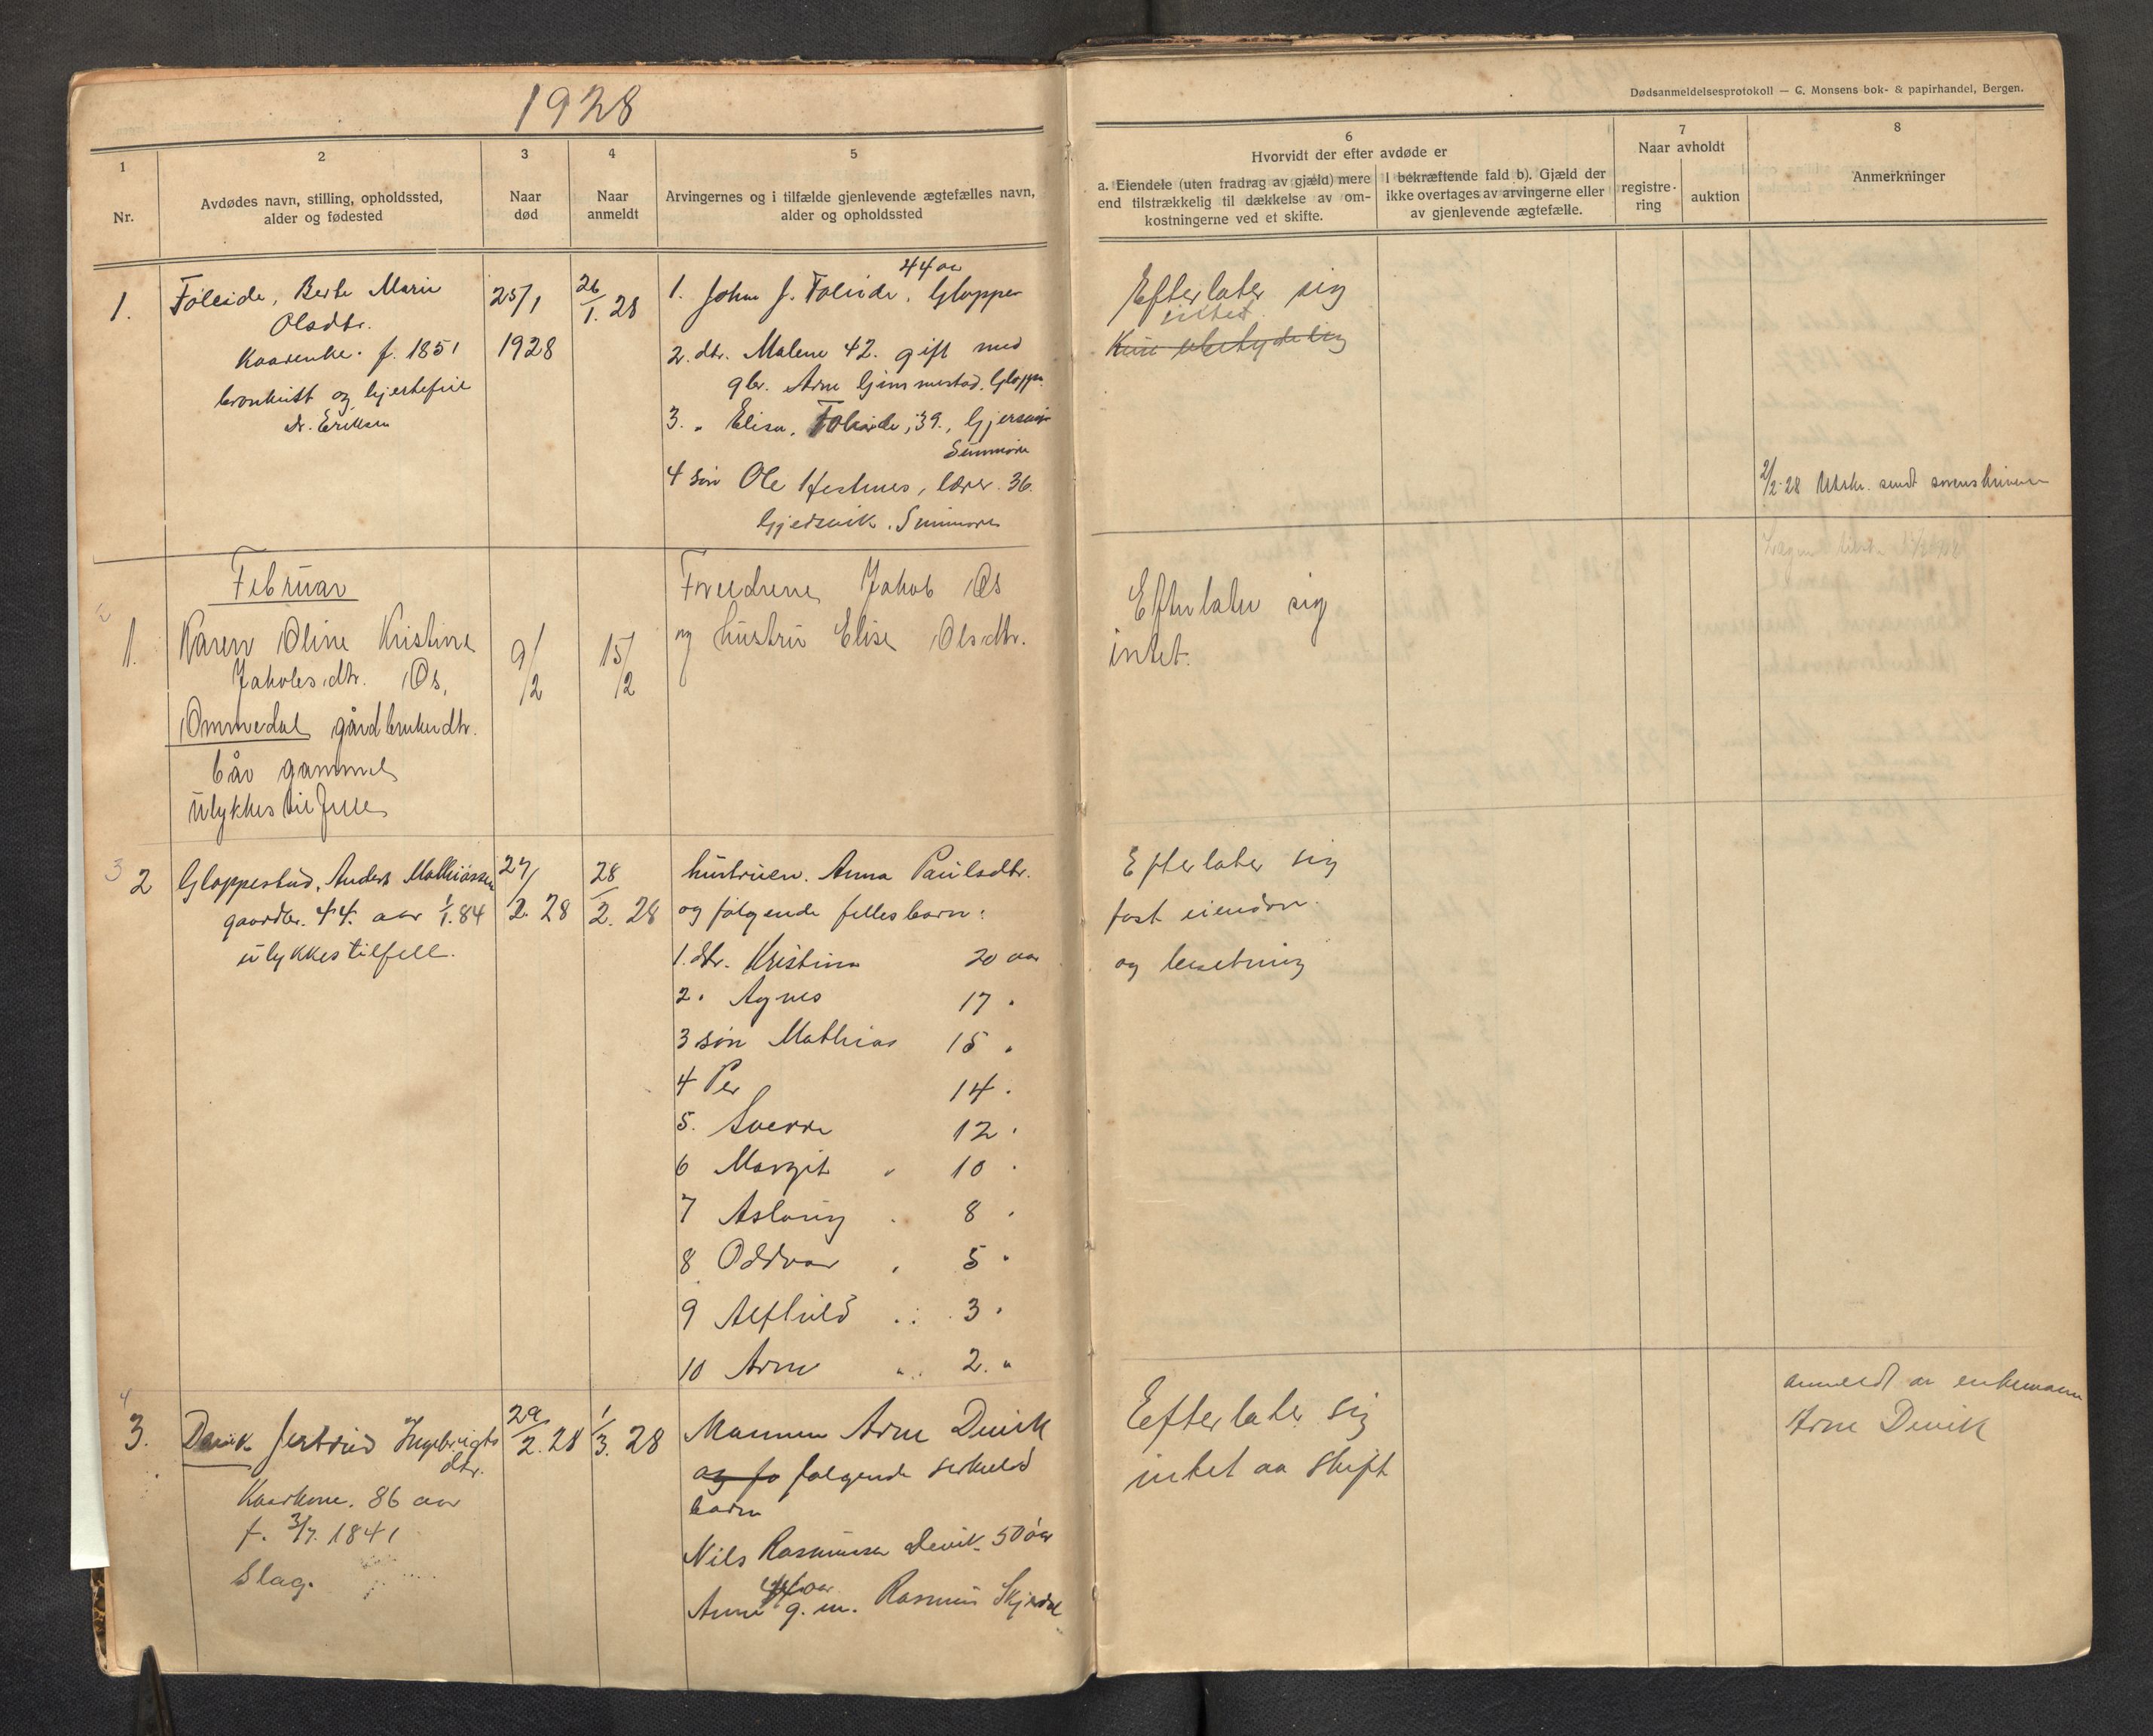 1928
1
Nr.
2
Avdødes navn, stilling, opholdssted,
alder og fødested
3
Naar
død
4
Naar
anmeldt
5
Arvingernes og i tilfælde gjenlevende ægtefælles navn,
alder og opholdssted
1.
Føleide, Berte Marie
Olsdtr.
Kaarenke. f. 1851
bronkitt og hjertefeil
dr. Eriksen
25/1
1928
26
/1. 28
44 aar
1. John J. Føleide, Gloppen
2. dtr. Malene 42. gift med
gbr. Arne Gimmestad. Gloppen
3. " Elisa, Føleide, 39.,
Sunnmøre
4 søn Ole Hestnes, lærer. 36.
Gjerdsvik. Sunnmøre
Februar
2
1.
Karen Oline Kristine
Jakobsdtr. Øs,
Ommedal gårdbrukerdtr.
6 år gammel
Ulykkestilfelle
9/
/2
15/
/2
Foreldrene Jakob Øs
og hustru Elise Olsdtr.
3 2
Gloppestad, Anders Mathiassen
gaardbr. 44. aar 1/1. 84
ulykkestilfell.
27/
/2. 28
28
/2. 28
hustruen. Anna Paulsdtr.
og følgende felles barn:
1. dtr. Kristina 20 aar
2 " Agnes 17 "
3 søn Mathias 15 "
4 Per 14 "
5. Sverre 12 "
6 Margit " 10 "
7 Aslaug " 8 "
8 Oddvar " 5 "
9 Alfhild " 3 "
10 Arne " 2. "
4
3.
Devik Jertrud Ingebrigts
dtr.
Kaarkone. 86 aar
f. 3/7. 1841
Slag.
29
/2. 28
1
/3. 28
Mannen Arne Devik
og fø følgende serkuld
barn
Nils Rasmussen Devik. 50 aar
aar
Anne g. m. Rasmus Skjerdal
Dødsanmeldelsesprotokoll — C. Monsens bok- & papirhandel, Bergen.
6
Hvorvidt der efter avdøde er
a. Eiendele (uten fradrag av gjæld) mere
end tilstrækkelig til dækkelse av om-
kostningerne ved et skifte.
I bekræftende fald b). Gjæld der
ikke overtages av arvingerne eller
av gjenlevende ægtefælle.
7
Naar avholdt
registre-
ring
auktion
8
Anmerkninger
Efterlater sig
intet
Kun ubetydelig
2/2. 28 Utskr. sendt sorenskriveren
Efterlater sig
intet.
Efterlater sig
fast eiendom
og besetning
Efterlater sig
intet aa skift
anmeldt av enkemann
Arne Devik